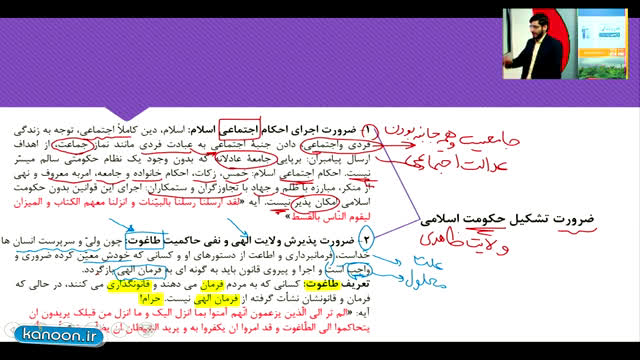 ۱- ضرورت اجرای احکام اجتماعی اسلام: اسلام، دین کاملاً اجتماعی، توجه به زندگی
فردی واجتماعی، دادن جنبهٔ اجتماعی به عبادت فردی مانند نماز جماعت، از اهداف
ارسال پیامبران: برپایی جامعهٔ عادلانه که بدون وجود یک نظام حکومتی سالم میسّر
نیست. احکام اجتماعی اسلام: خمس، زکات، احکام خانواده و جامعه، امربه معروف و نهی
از منکر، مبارزه با ظلم و جهاد با تجاوزگران و ستمکاران: اجرای این قوانین بدون حکومت
اسلامی امکان پذیر نیست. آیه «لقد ارسلنا رسلنا بالبیّنات و انزلنا معهم الکتاب و المیزان
لیقوم النّاس بالقسط»
جامعیت و همه جانبه بودن
عدالت اجتماعی
ضرورت تشکیل حکومت اسلامی
ولایت ظاهری
۲- ضرورت پذیرش ولایت الهی و نفی حاکمیت طاغوت: چون ولیّ و سرپرست انسان ها
خداست، فرمانبرداری و اطاعت از دستورهای او و کسانی که خودش معین کرده ضروری و
واجب است و اجرا و پیروی قانون باید به گونه ای به فرمان الهی بازگردد.
علت
معلول
تعریف طاغوت: کسانی که به مردم فرمان می دهند و قانونگذاری می کنند، در حالی که
فرمان و قانونشان نشأت گرفته از فرمان الهی نیست. حرام!
آیه: «الم تر الی الّذین یزعمون انّهم آمنوا بما انزل الیک و ما انزل من قبلک یریدون ان
یتحاکموا الی الطّاغوت و قد امروا ان یکفروا به و یرید الشیطان ان
kanoon.ir